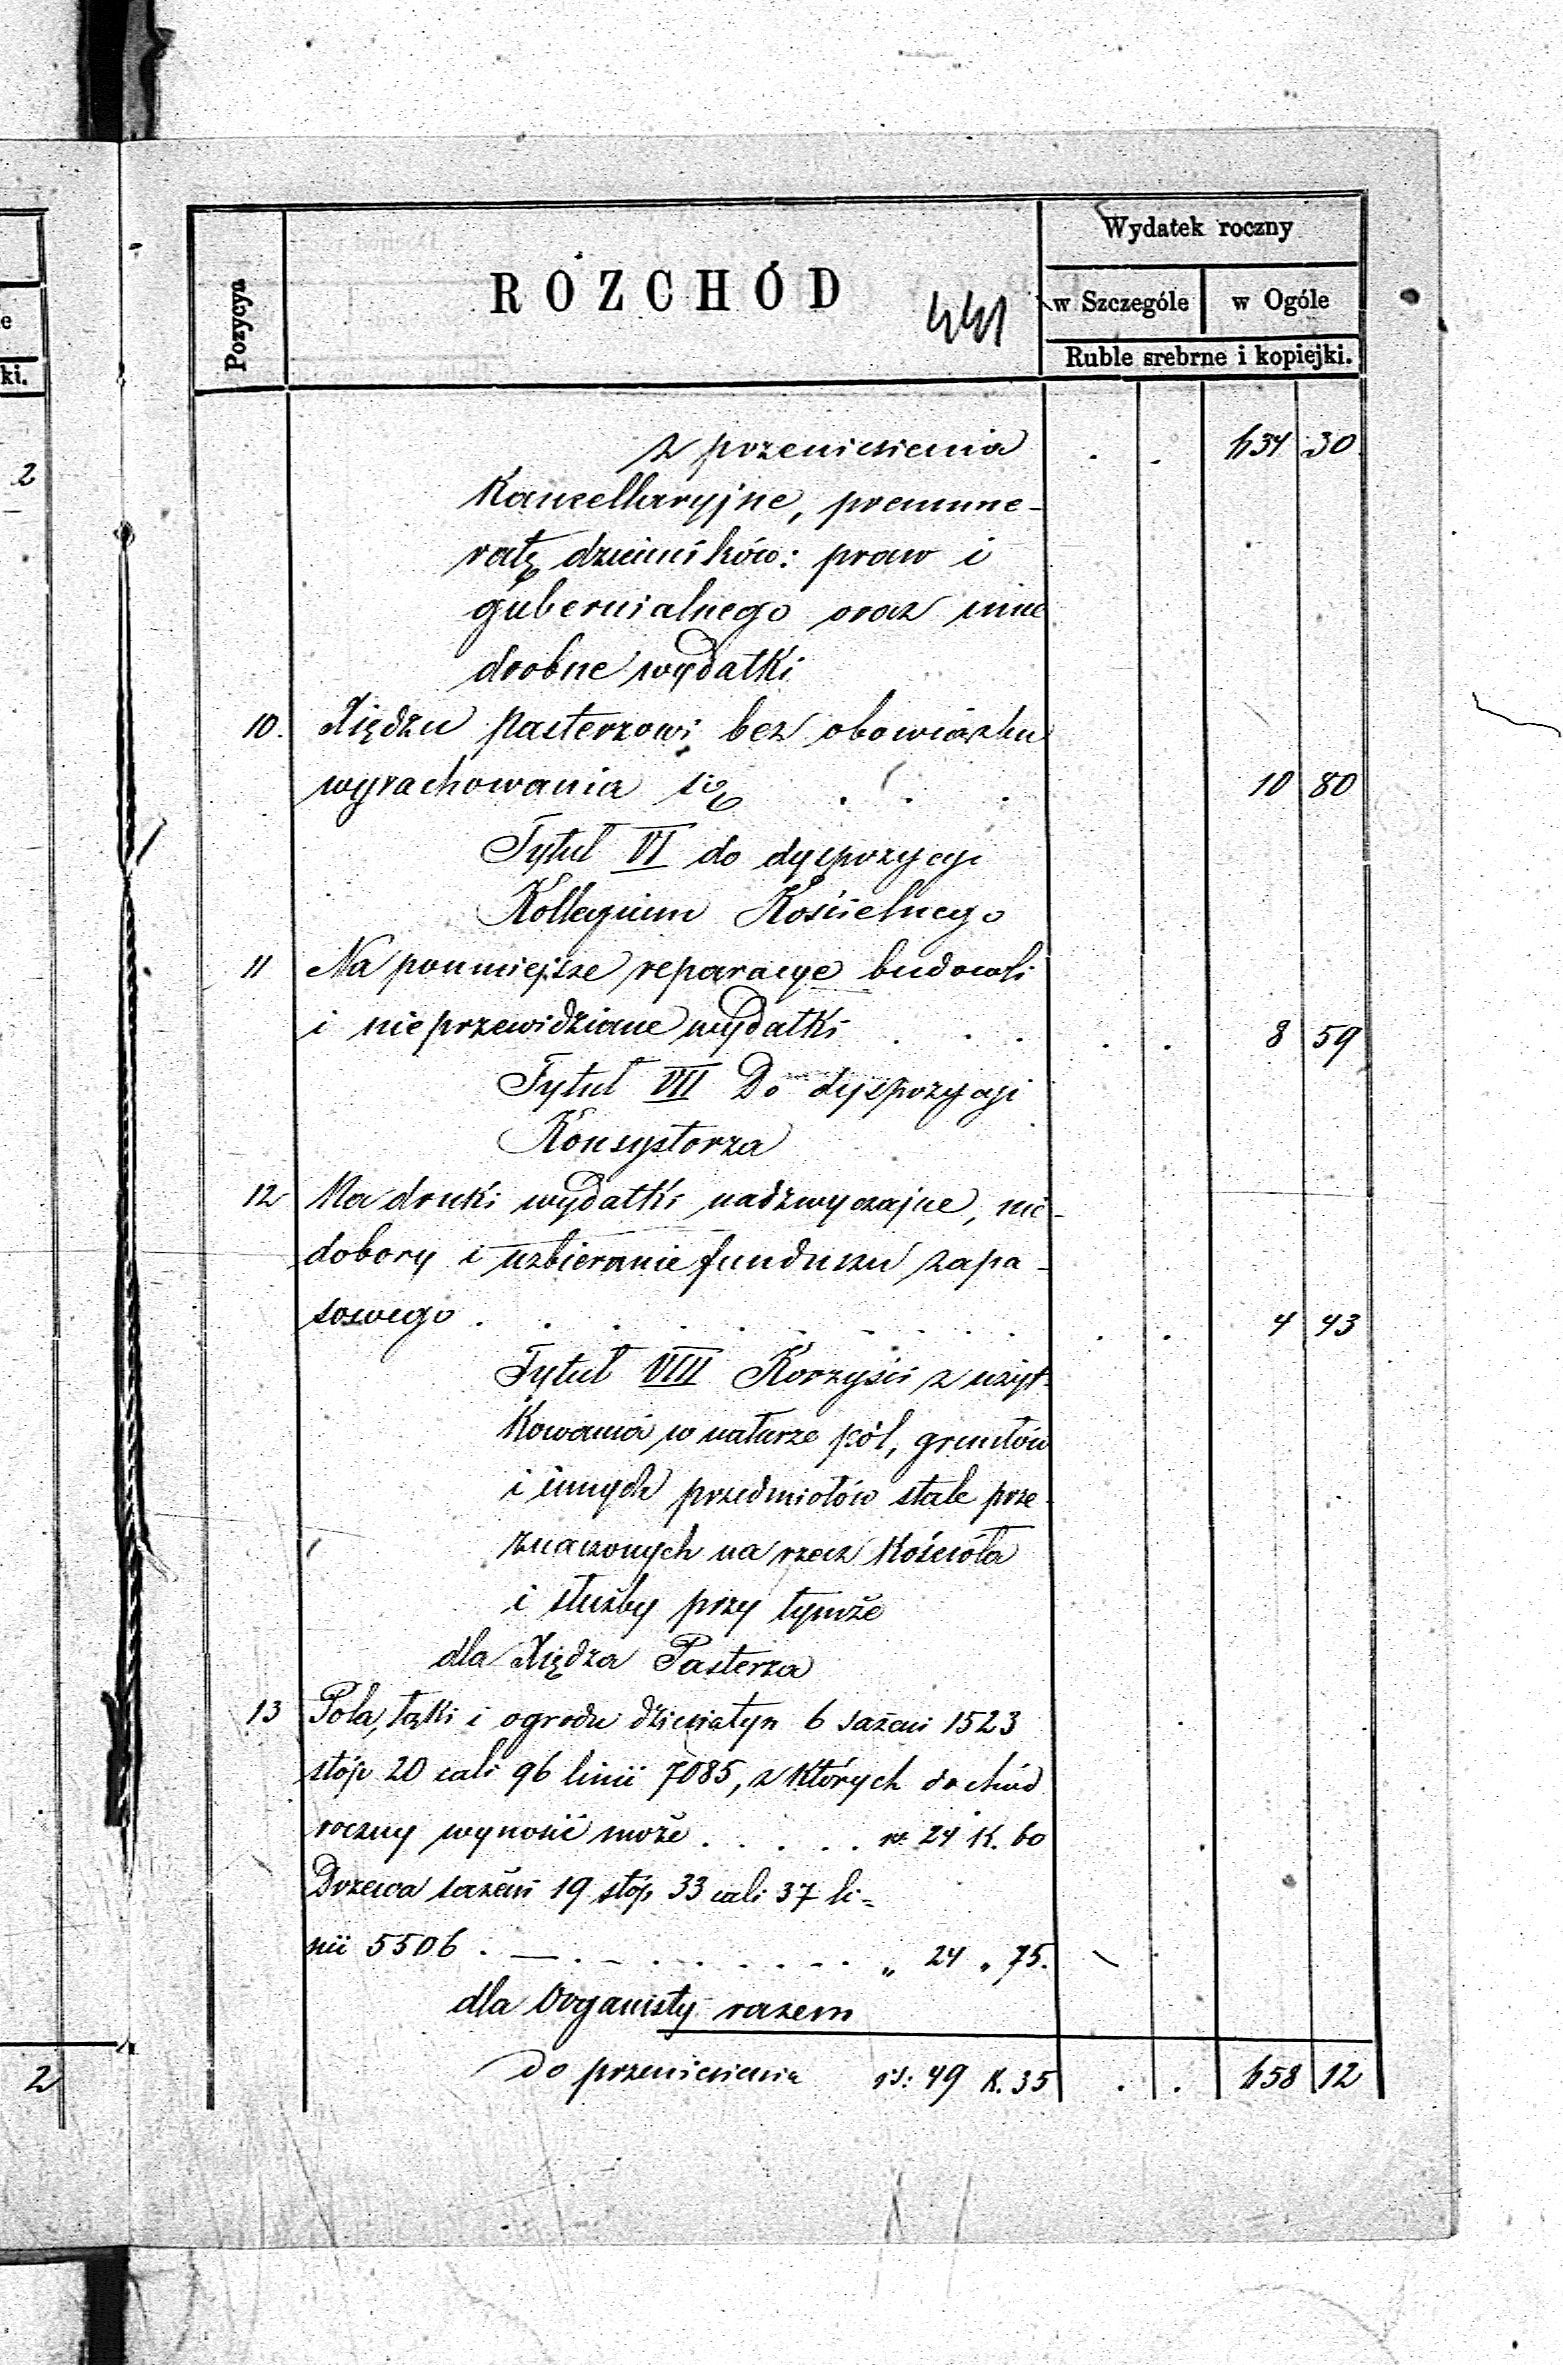 Pozycya
ROZCHÓD
441
Wydatek roczny
w Szczególe w Ogóle
Ruble srebrne i kopiejki.
z przeniesienia . . 634 30
Kancellaryjne, prenume-
ratę dzienników: praw i
gubernialnego oraz inne
drobne wydatki
10. Xiędzu Pasterzowi bez obowiązku
wyrachowania się . . . 10 80
Tytuł VI do dyspozycyi
Kollegium Kościelnego
11 Na pomniejsze reparacye budowli
i nieprzewidziane wydatki . . . . . 8 59
Tytuł VII Do dyspozycyi
Konsystorza
12 Na druki wydatki nadzwyczajne, nie-
dobory i uzbieranie funduszu zapa-
sowego . . . . . . . . . . . 4 43
Tytuł VIII Korzyści z użyt-
kowania w naturze pól, gruntów
i innych przedmiotów stale prze-
znaczonych na rzecz Kościoła
i służby przy tymże
dla Xiędza Pasterza
13 Pola, łąki i ogrodu dziesiatyn 6 sażeni 1523
stóp 20 cali 96 linii 7085, z których dochód
roczny wynosić może . . . . . rs. 24 K. 60
Drzewa sażeni 19 stóp 33 cali 37 li=
nii 5506 . - . . . . . . . „ 24 „ 75.
dla Organisty razem
Do przeniesienia rs: 49 K. 35 . . 658 12
e
ki.
2
2